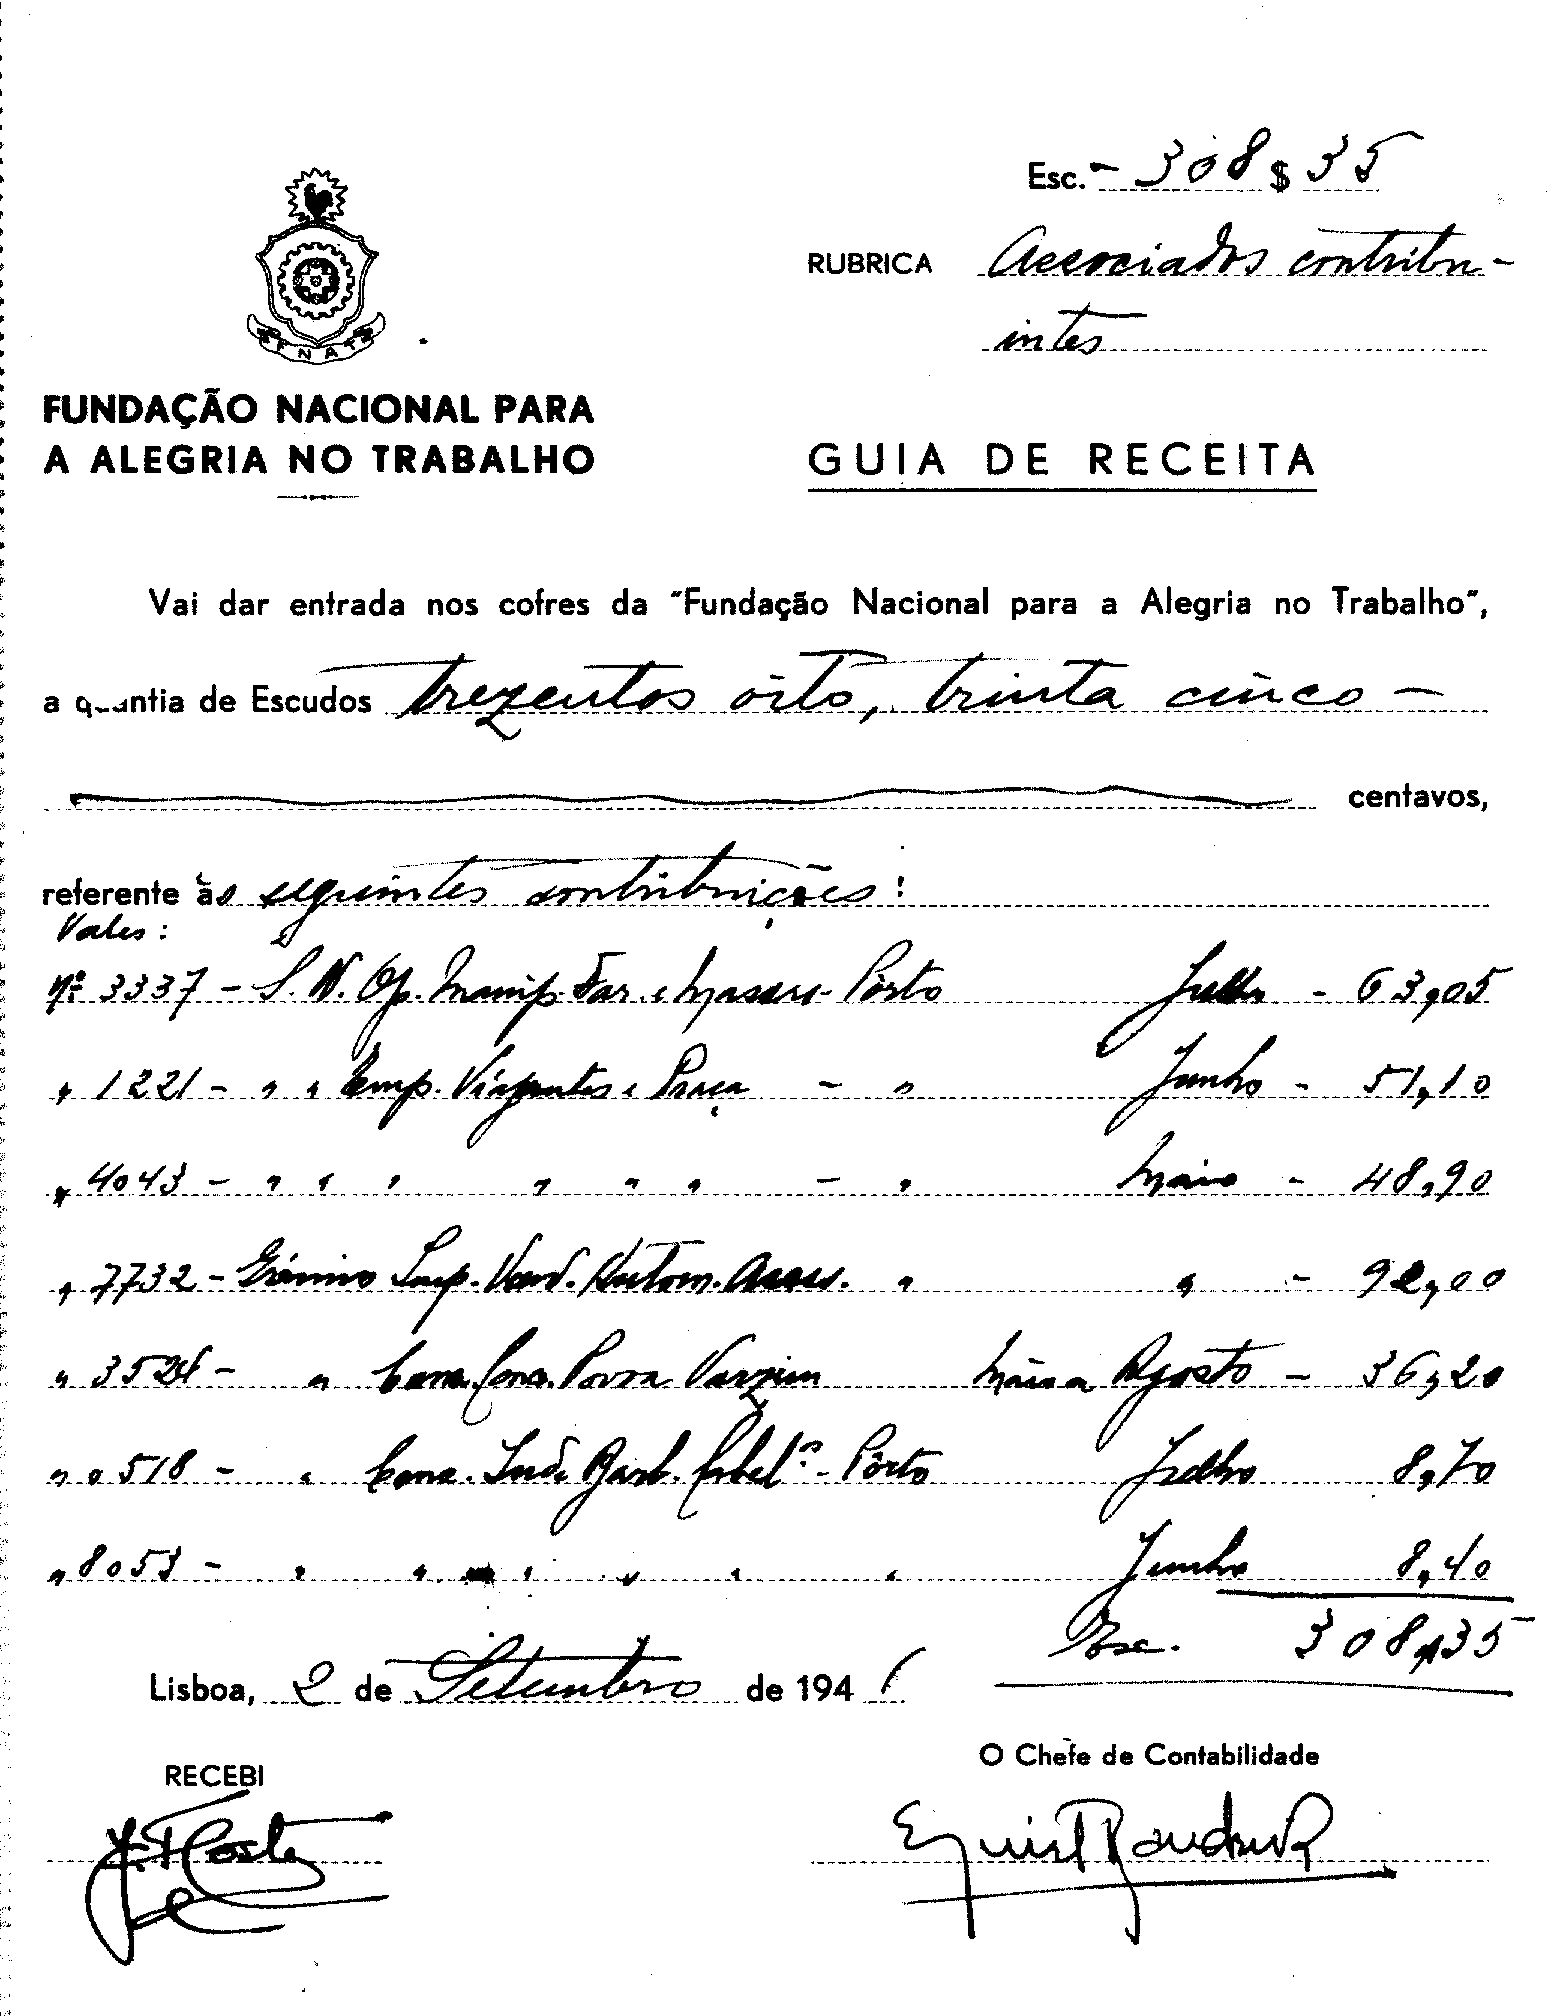 Esc. - 308 $ 35
RUBRICA Associados contribu-
intes
FNAT
FUNDAÇÃO NACIONAL PARA
A ALEGRIA NO TRABALHO
GUIA DE RECEITA
Vai dar entrada nos cofres da "Fundação Nacional para a Alegria no Trabalho",
a quantia de Escudos trezentos oito, trinta cinco -
centavos,
referente às seguintes contribuições:
Vales:
Nº 3337 - S. N. Op. Manip. Far. e Massas - Pôrto Julho - 63,05
" 1221 - " " Emp. Viajantes e Praça - " Junho - 51,10
" 4043 - " " " " " " - " Maio - 48,90
" 7732 - Grémio Imp. Vend. Autom. Aces. " " - 92,00
" - " Com. Conc. Povoa Varzim Maio a Agosto - 36,20
" 0518 - " Conc. Ind. Barb. Cabel.os - Pôrto Julho 8,70
" 8053 - " " " " " " Junho 8,40
Esc. 308$35
Lisboa, 2 de Setembro de 1941
RECEBI
O Chefe de Contabilidade
Costa